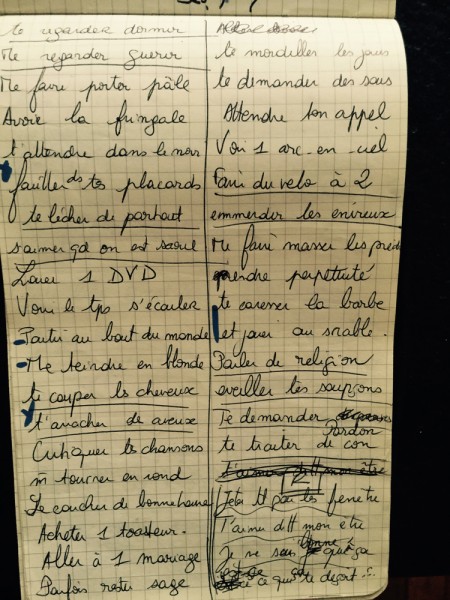 te regarder dormir
Me regarder guerir
Me faire porter pâle
Avoir la fringale
t'attendre dans le noir
fouiller ds tes placards
te lécher de partout
s'aimer qd on est saoul
Louer 1 DVD
Voir le tps s'écouler
Partir au bout du monde
Me teindre en blonde
te couper ls cheveux
t'arracher de aveux
Critiquer ls chansons
tourner en rond
Se coucher de bonne heure
Acheter 1 toasteur.
Aller à 1 mariage
Parfois rester sage
te mordiller les joues
te demander des sous
Attendre ton appel
Voir 1 arc-en-ciel
faire du velo à 2
emmerder les envieux
Me faire masser les pieds
prendre perpétuité
te caresser la barbe
et jouer au
Parler de religion
eveiller tes soupçons
Te demander
Pardon
te traiter de con
t'aimer dtt mon être
2
Jeter tt par les fenetre
T'aimer dtt mon être
Je ne suis
bonne à
que ça
ce que te